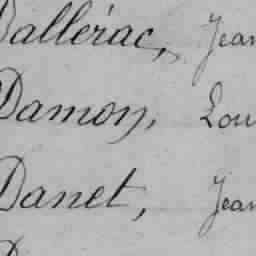 Dallérac, Jean
Damon, Lou
Danet, Jean